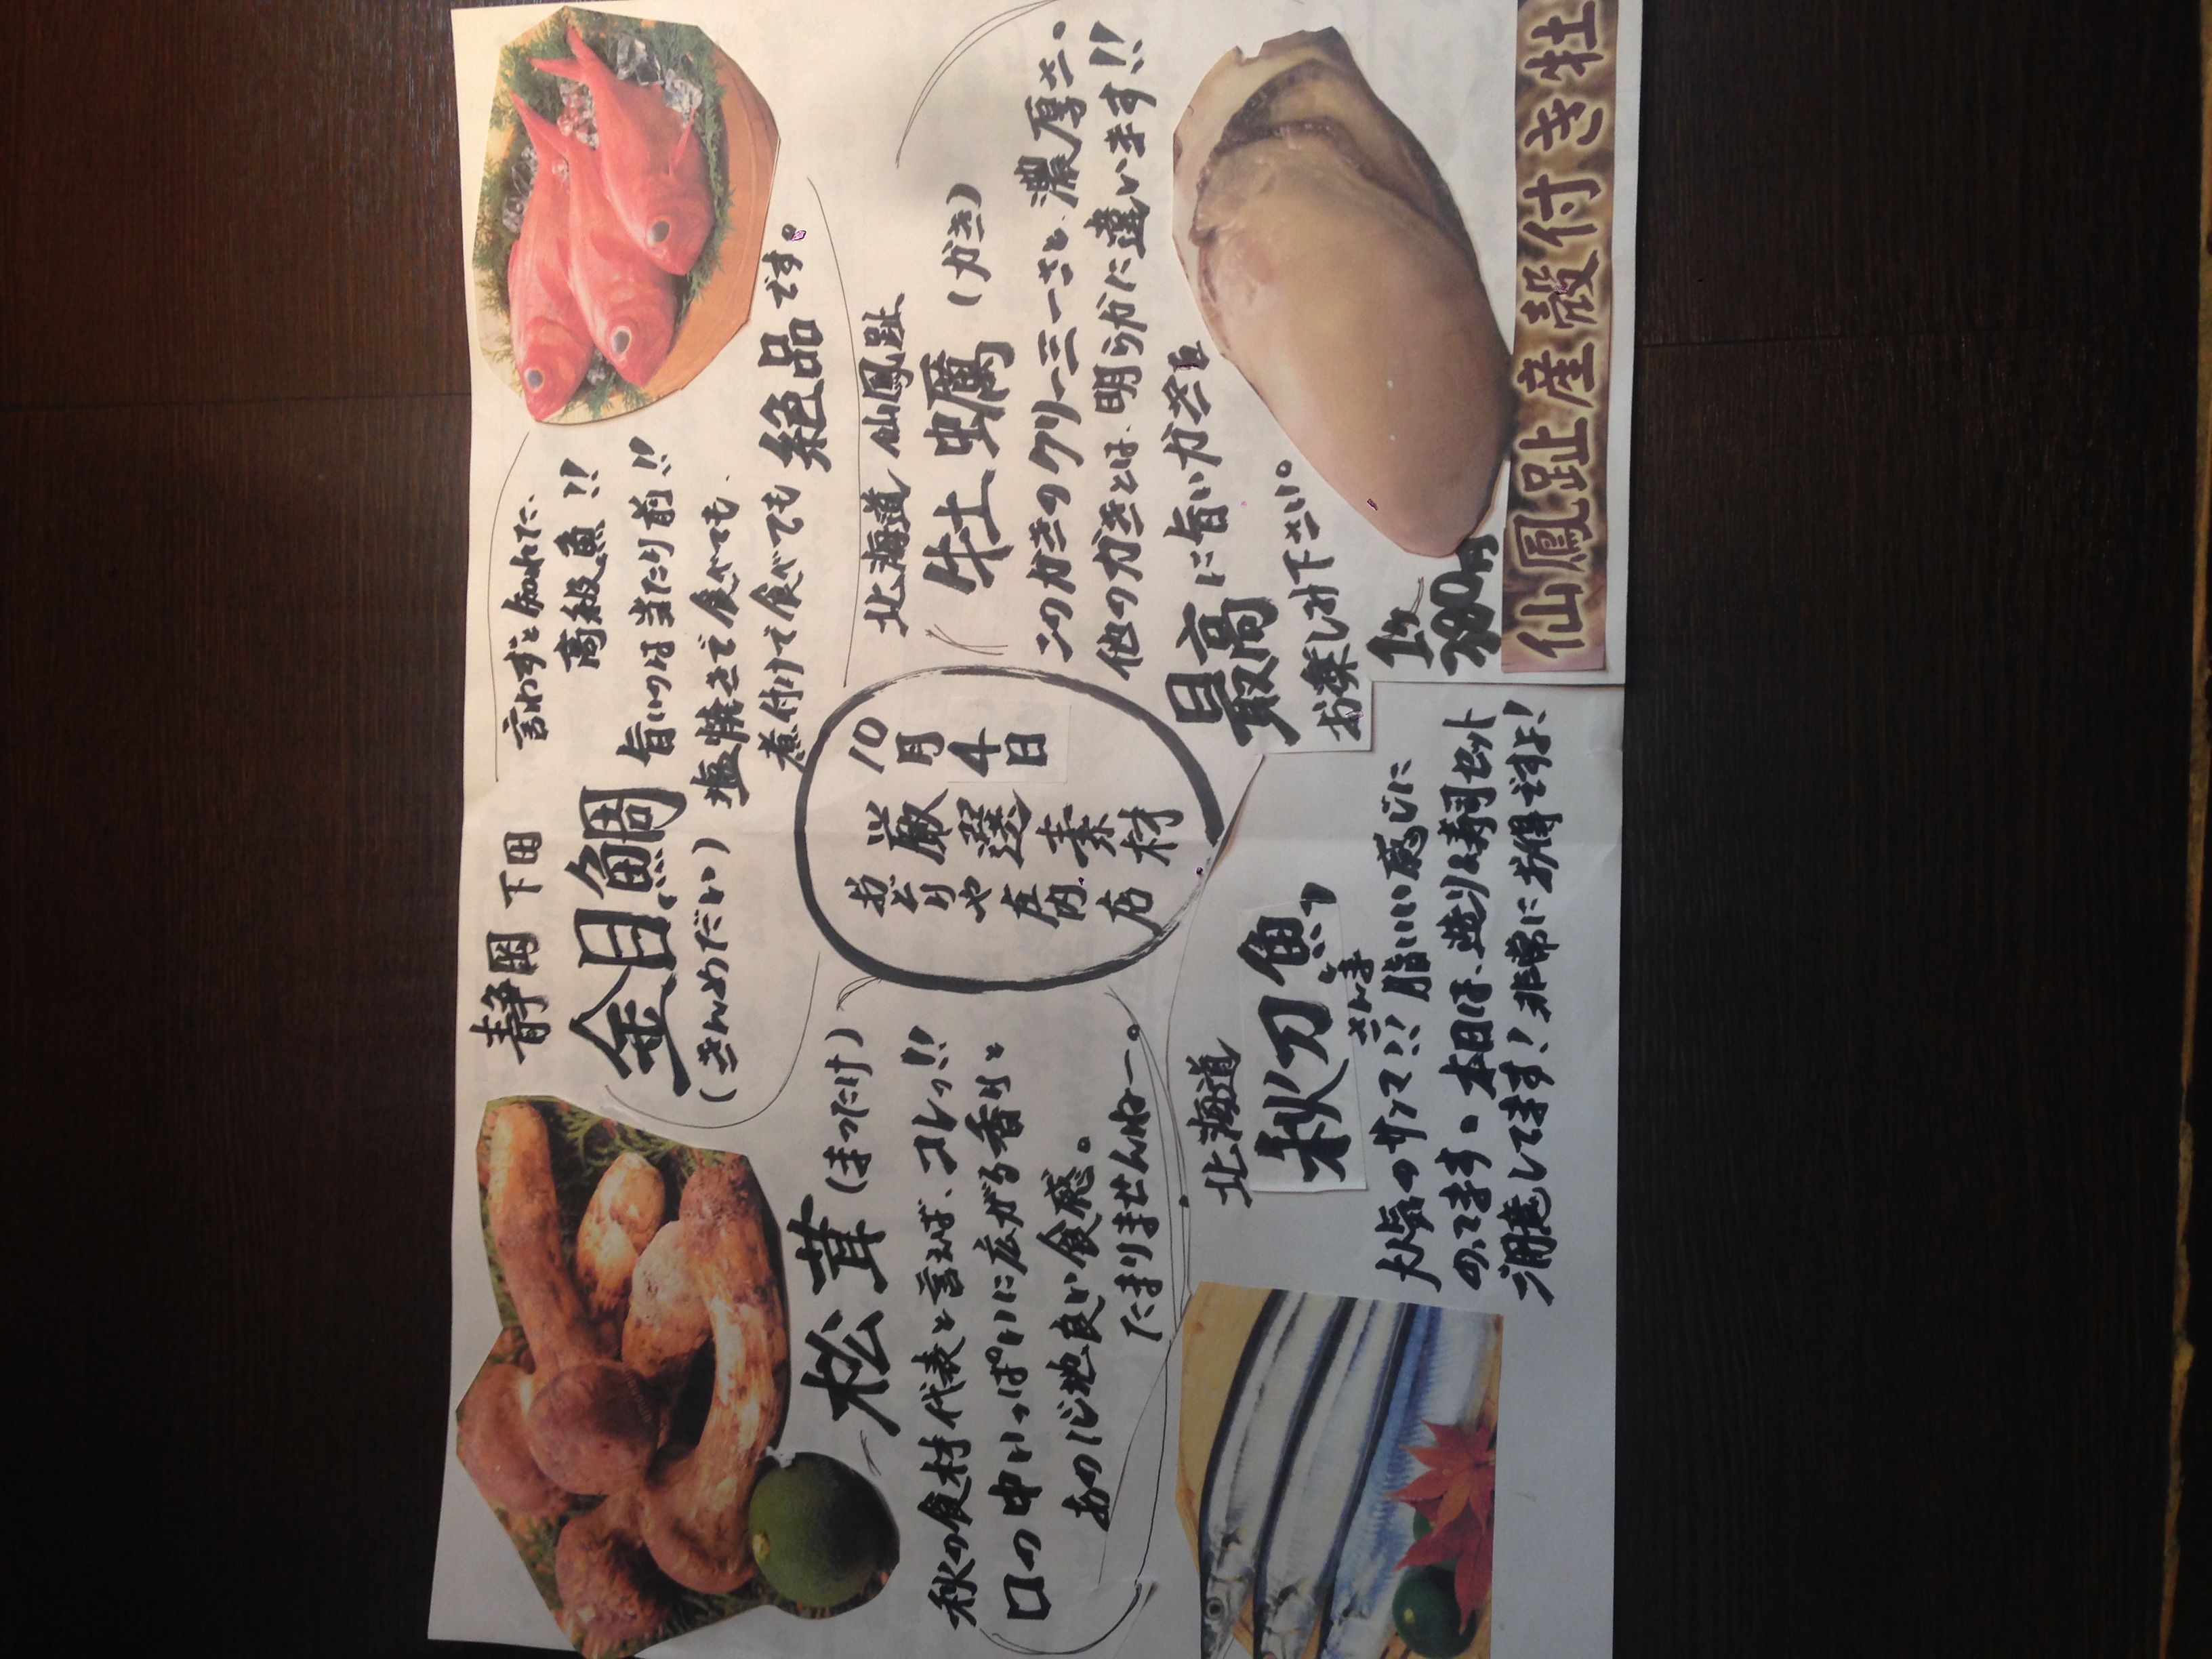 松茸(まつたけ)
秋の食材代表と言えば、コレッ!!
口の中いっぱいに広がる香りと
あの心地良い食感。
たまりませんねー。
静岡 下田
金目鯛
(きんめだい)
言わずと知れた
高級魚!!
旨いのは当たり前!!
塩焼きで食べても、
煮付けで食べても絶品です。
10月4日
厳選素材
おどりや庄内店
北海道
秋刀魚
さんま
大人気のサンマ!!! 脂いい感じに
のってます。本日は、造り&寿司セット
ご用意してます! 非常にお得ですよ!
北海道 仙鳳趾
牡蠣(がき)
このがきのクリーミーさと、濃厚さ。
他のがきとは、明らかに違います!!
最高に旨いがき
お楽しみ下さい。
1ヶ
仙鳳趾産殻付き牡